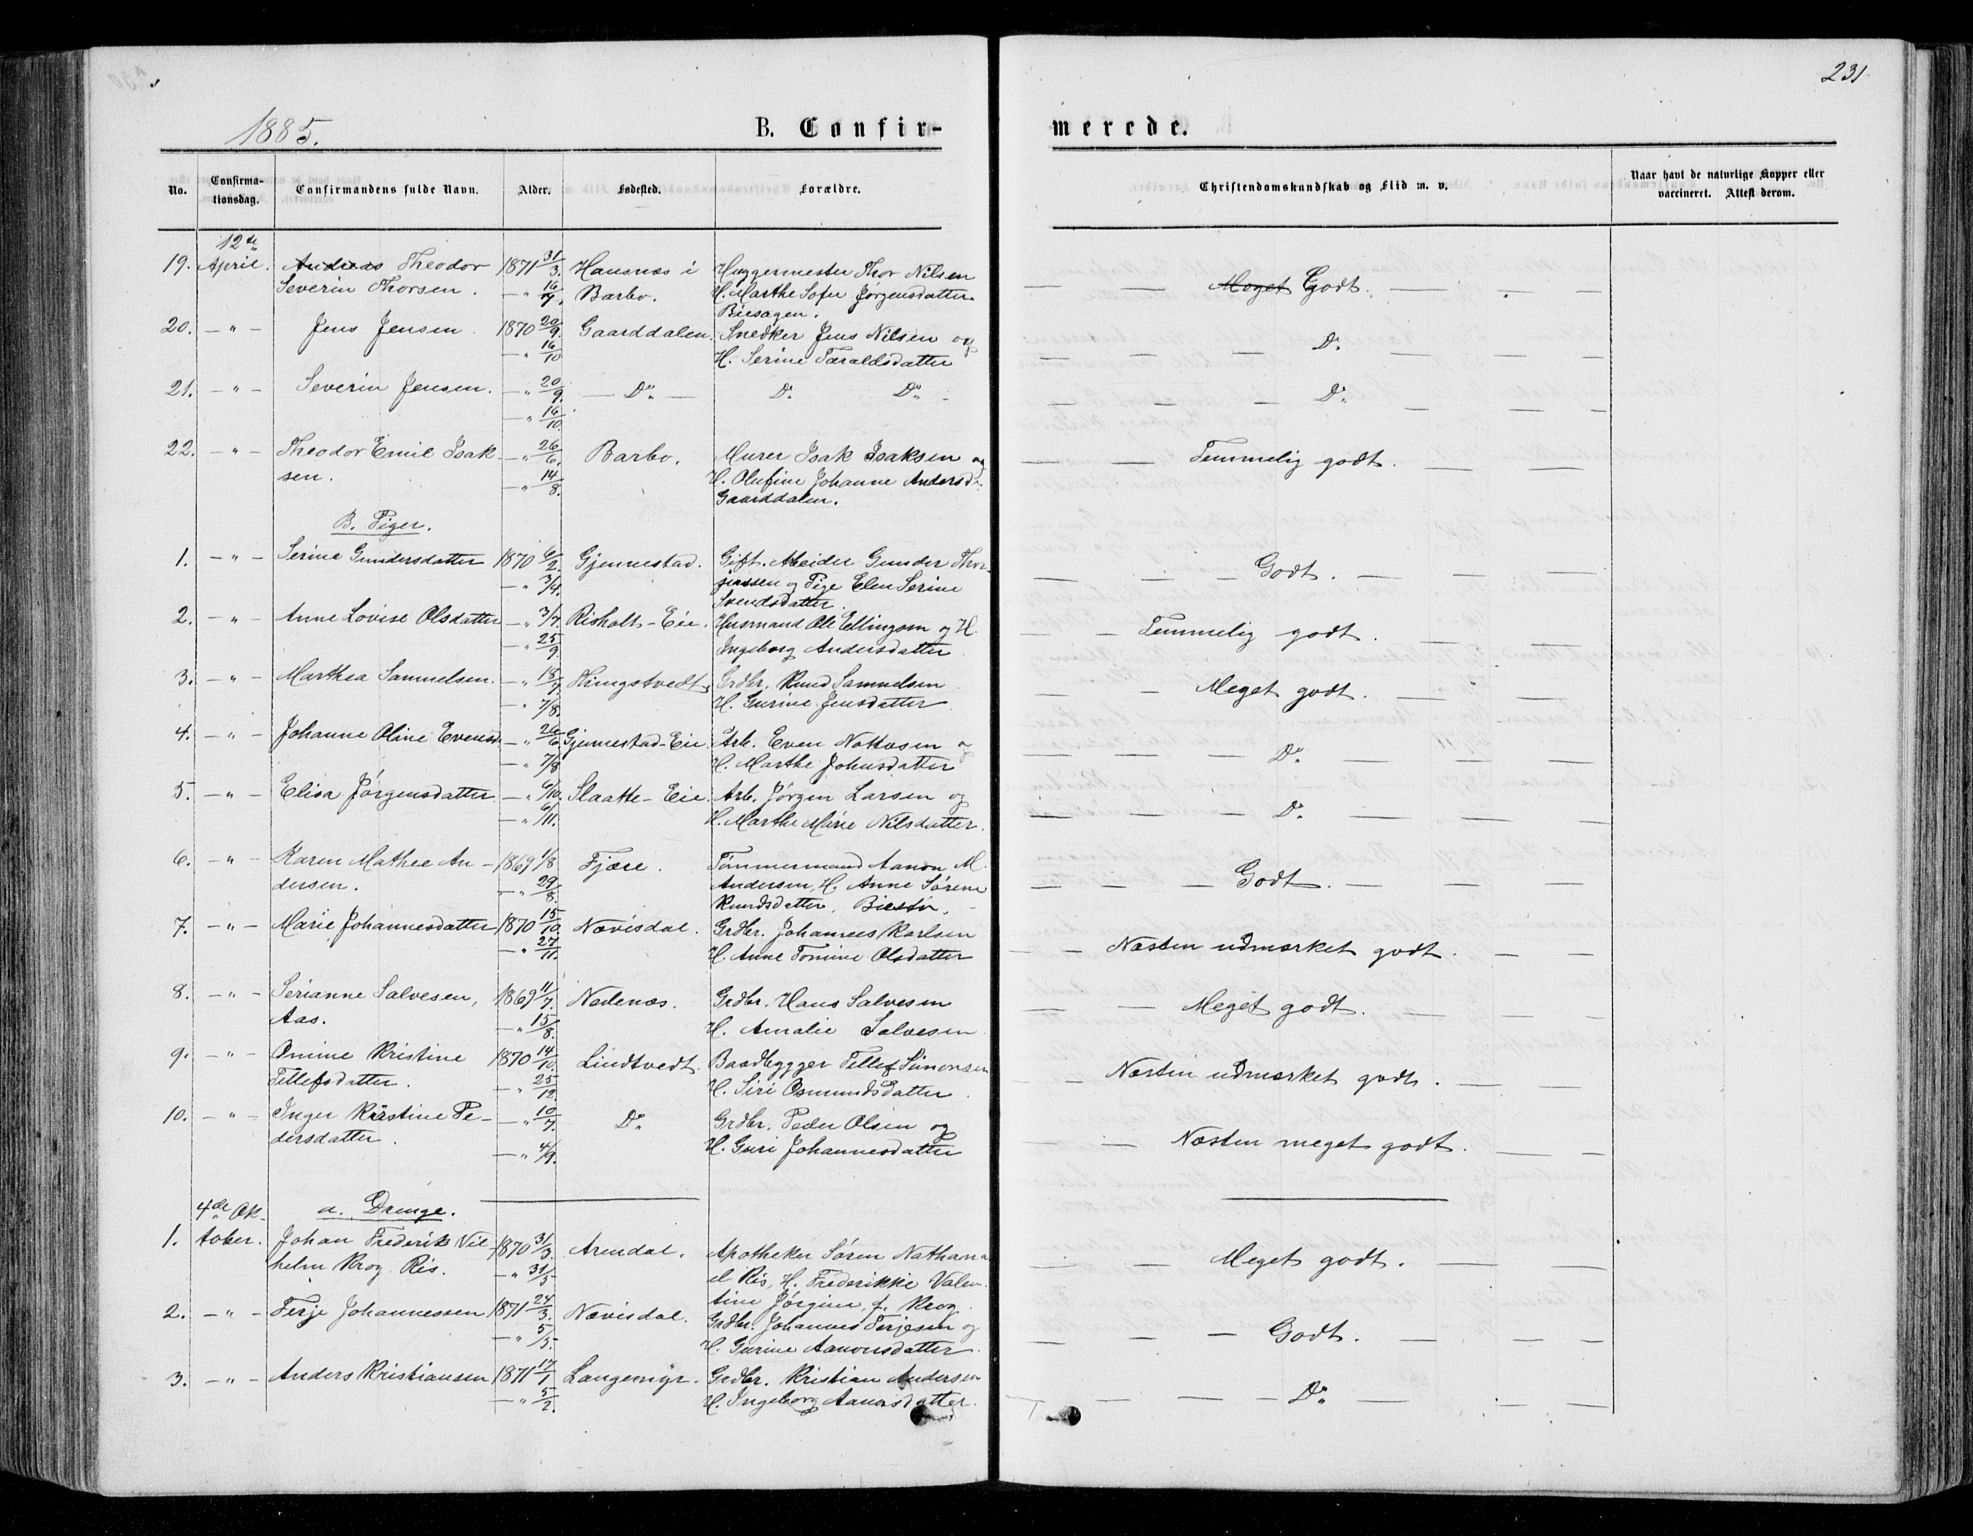 231
1885.
B. Confir-
merede.
No. Confirma-tionsdag. Confirmandens fulde Navn. Alder. Fødested. Forældre. Christendomskundskab og Flid m. v. Naar havt de naturlige Kopper eller vaccineret. Attest derom.
12te
19. April. Andreas Theodor 1871 31/3. Hausnæs i Huggermester Thor Nilsen
Severin Thorsen. — " 16/4. Barbo. H. Marthe Sofie Jørgensdatter — — Meget Godt. — — —
Biesagen.
20. — " — Jens Jensen 1870 20/9. Gaarddalen. Snedker Jens Nilsen og
— " 16/10 H. Serine Taraldsdatter — — — Do — — —
21. — " — Severin Jensen. — " 20/9. — Do — Do Do — — — Do — — —
— " 16/10.
22. — " — Theodor Emil Isak- — " 26/6. Barbo. Murer Isak Isaksen og — — Temmelig godt. — — —
sen. — " 14/8. H. Olufine Johanne Andersd.
Gaarddalen.
B. Piger.
1. — " — Serine Gundersdatter 1870 6/2. Gjennestad. Gift. Arbeider Gunder Thor-
— " 3/4. jussen og Pige Elen Serine — — — Godt. — — —
Svendsdatter.
2. — " — Anne Lovise Olsdatter — " 3/7. Risholt-Eie. Husmand Ole Ellingsen og H.
— " 25/9. Ingeborg Andersdatter — — Temmelig godt. — — —
3. — " — Marthea Samuelsen. — " 15/7 Hingstvedt, Grdbr. Knud Samuelsen
— " 7/8. H. Gurine Jensdatter — — Meget godt. — — —
4. — " — Johanne Oline Evensd. — " 26/6. Gjennestad-Eie Arb. Even Nottosen og
— " 7/8 H. Marthe Johnsdatter — — — Do — — —
5. — " — Elisa Jørgensdatter — " 6/10. Slaatte-Eie. Arb. Jørgen Larsen og
— " 6/11. H. Marthe Marie Nilsdatter. — — — Do — — —
6. — " — Karen Mathee An- 1869 1/8 Fjære. Tømmermand Aanon M.
dersen. — " 29/8. Andersen, H. Anne Sørine — — — Godt. — — —
Knudsdatter,
7. — " — Marie Johannesdatter 1870 15/10. Nævisdal. Grdbr. Johannes Karlsen
— " 27/11. H. Anne Tomine Olsdatter — — Næsten udmærket godt. — —
8. — " — Serianne Salvesen, 1869 11/7 Nedenæs. Grdbr. Hans Salvesen — — Meget godt. — — —
Aas. — " 15/8. H. Amalie Salvesen
9. — " — Omine Kristine 1870 14/10. Lindtvedt. Baadbygger Tellef Simonsen
Tellefsdatter. — " 25/12. H. Siri OsmundsDatter. — — Næsten udmærket godt. — —
10. — " — Inger Kristine Pe- — " 10/7. Do Grdbr. Peder Olsen og
dersdatter. — " 4/9. H. Guri Johannesdatter — — Næsten meget godt. — —
4de Ok- a. Drenge.
1. tober. Johan Frederik Vil- 1870 31/3. Arendal. Apotheker Søren Nathana-
helm Krog Ris. — " 31/5 el Ris, H. Frederikke Valen- — — — Meget godt. — — —
tine Jørgine, f. Krog.
2. — " — Terje Johannessen 1871 24/3. Nævisdal. Grdbr. Johannes Terjesen og
— " 5/5. H. Gurine Aanonsdatter. — — — Godt. — — —
3. — " — Anders Kristiansen 1871 17/1 Langemyr. Grdbr. Kristian Andersen
— " 5/2. H. Ingeborg Aanonsdatter. — — — Do — — —